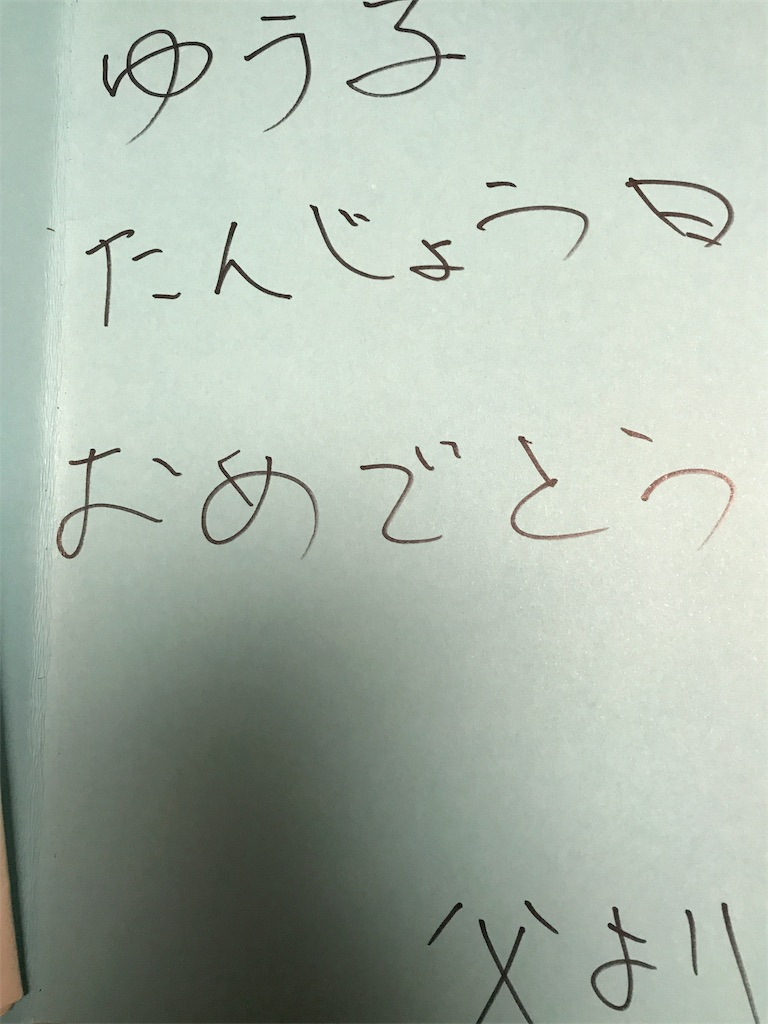 ゆう子
たんじょう日
おめでとう
父より